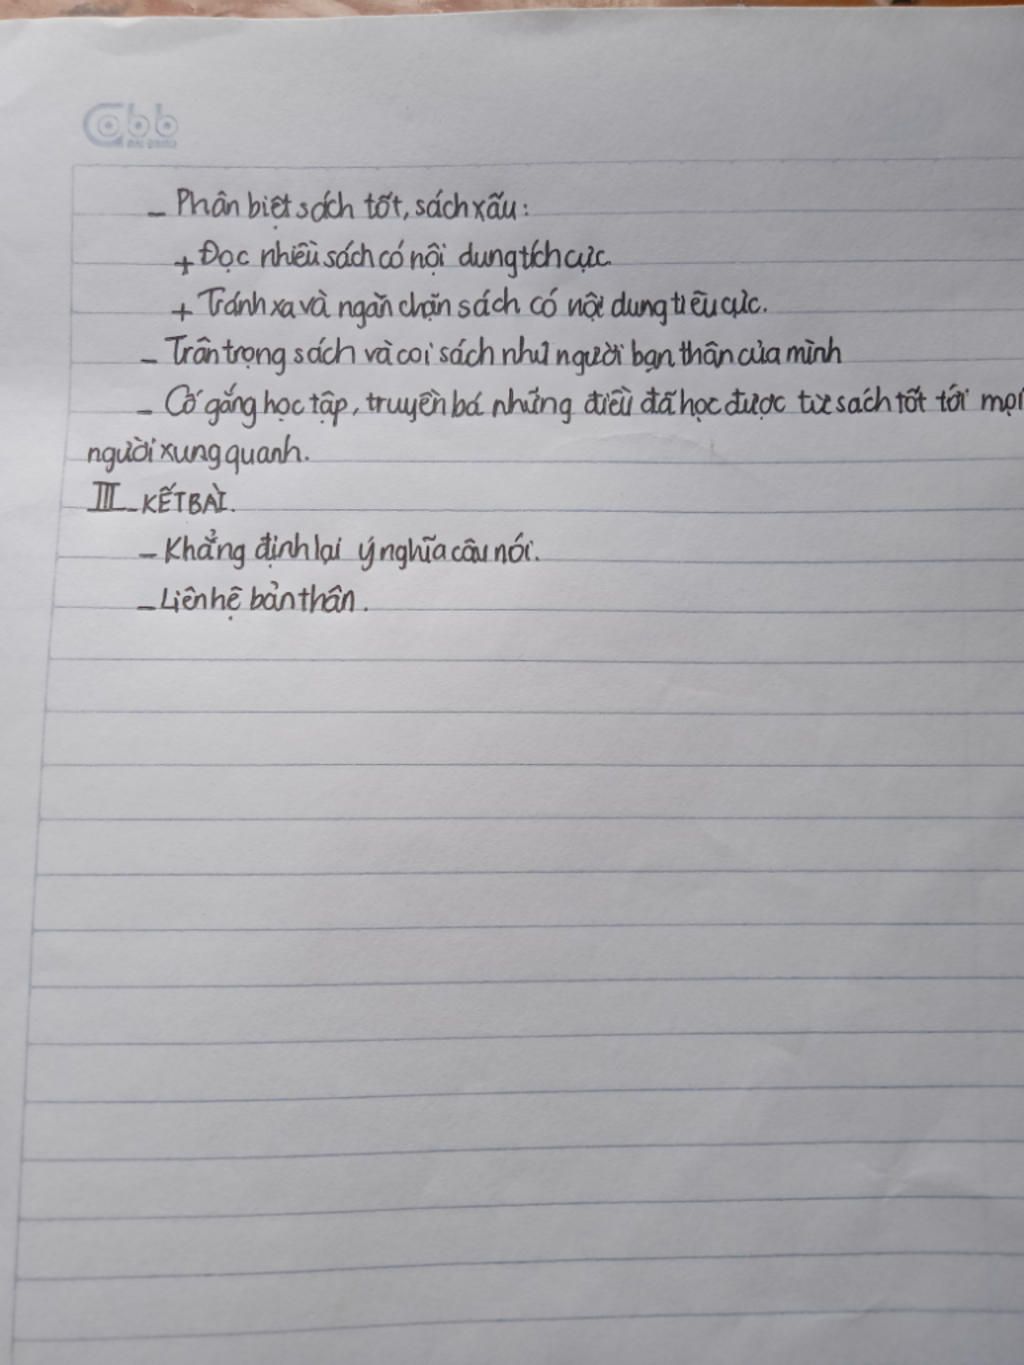 Cabb
- Phân biệt sách tốt, sách xấu:
+ Đọc nhiều sách có nội dung tích cực.
+ Tránh xa và ngăn chặn sách có nội dung tiêu cực.
- Trân trọng sách và coi sách như người bạn thân của mình
- Cố gắng học tập, truyền bá những điều đã học được từ sách tốt tới mọi
người xung quanh.
III - KẾT BÀI.
- Khẳng định lại ý nghĩa câu nói.
- Liên hệ bản thân.